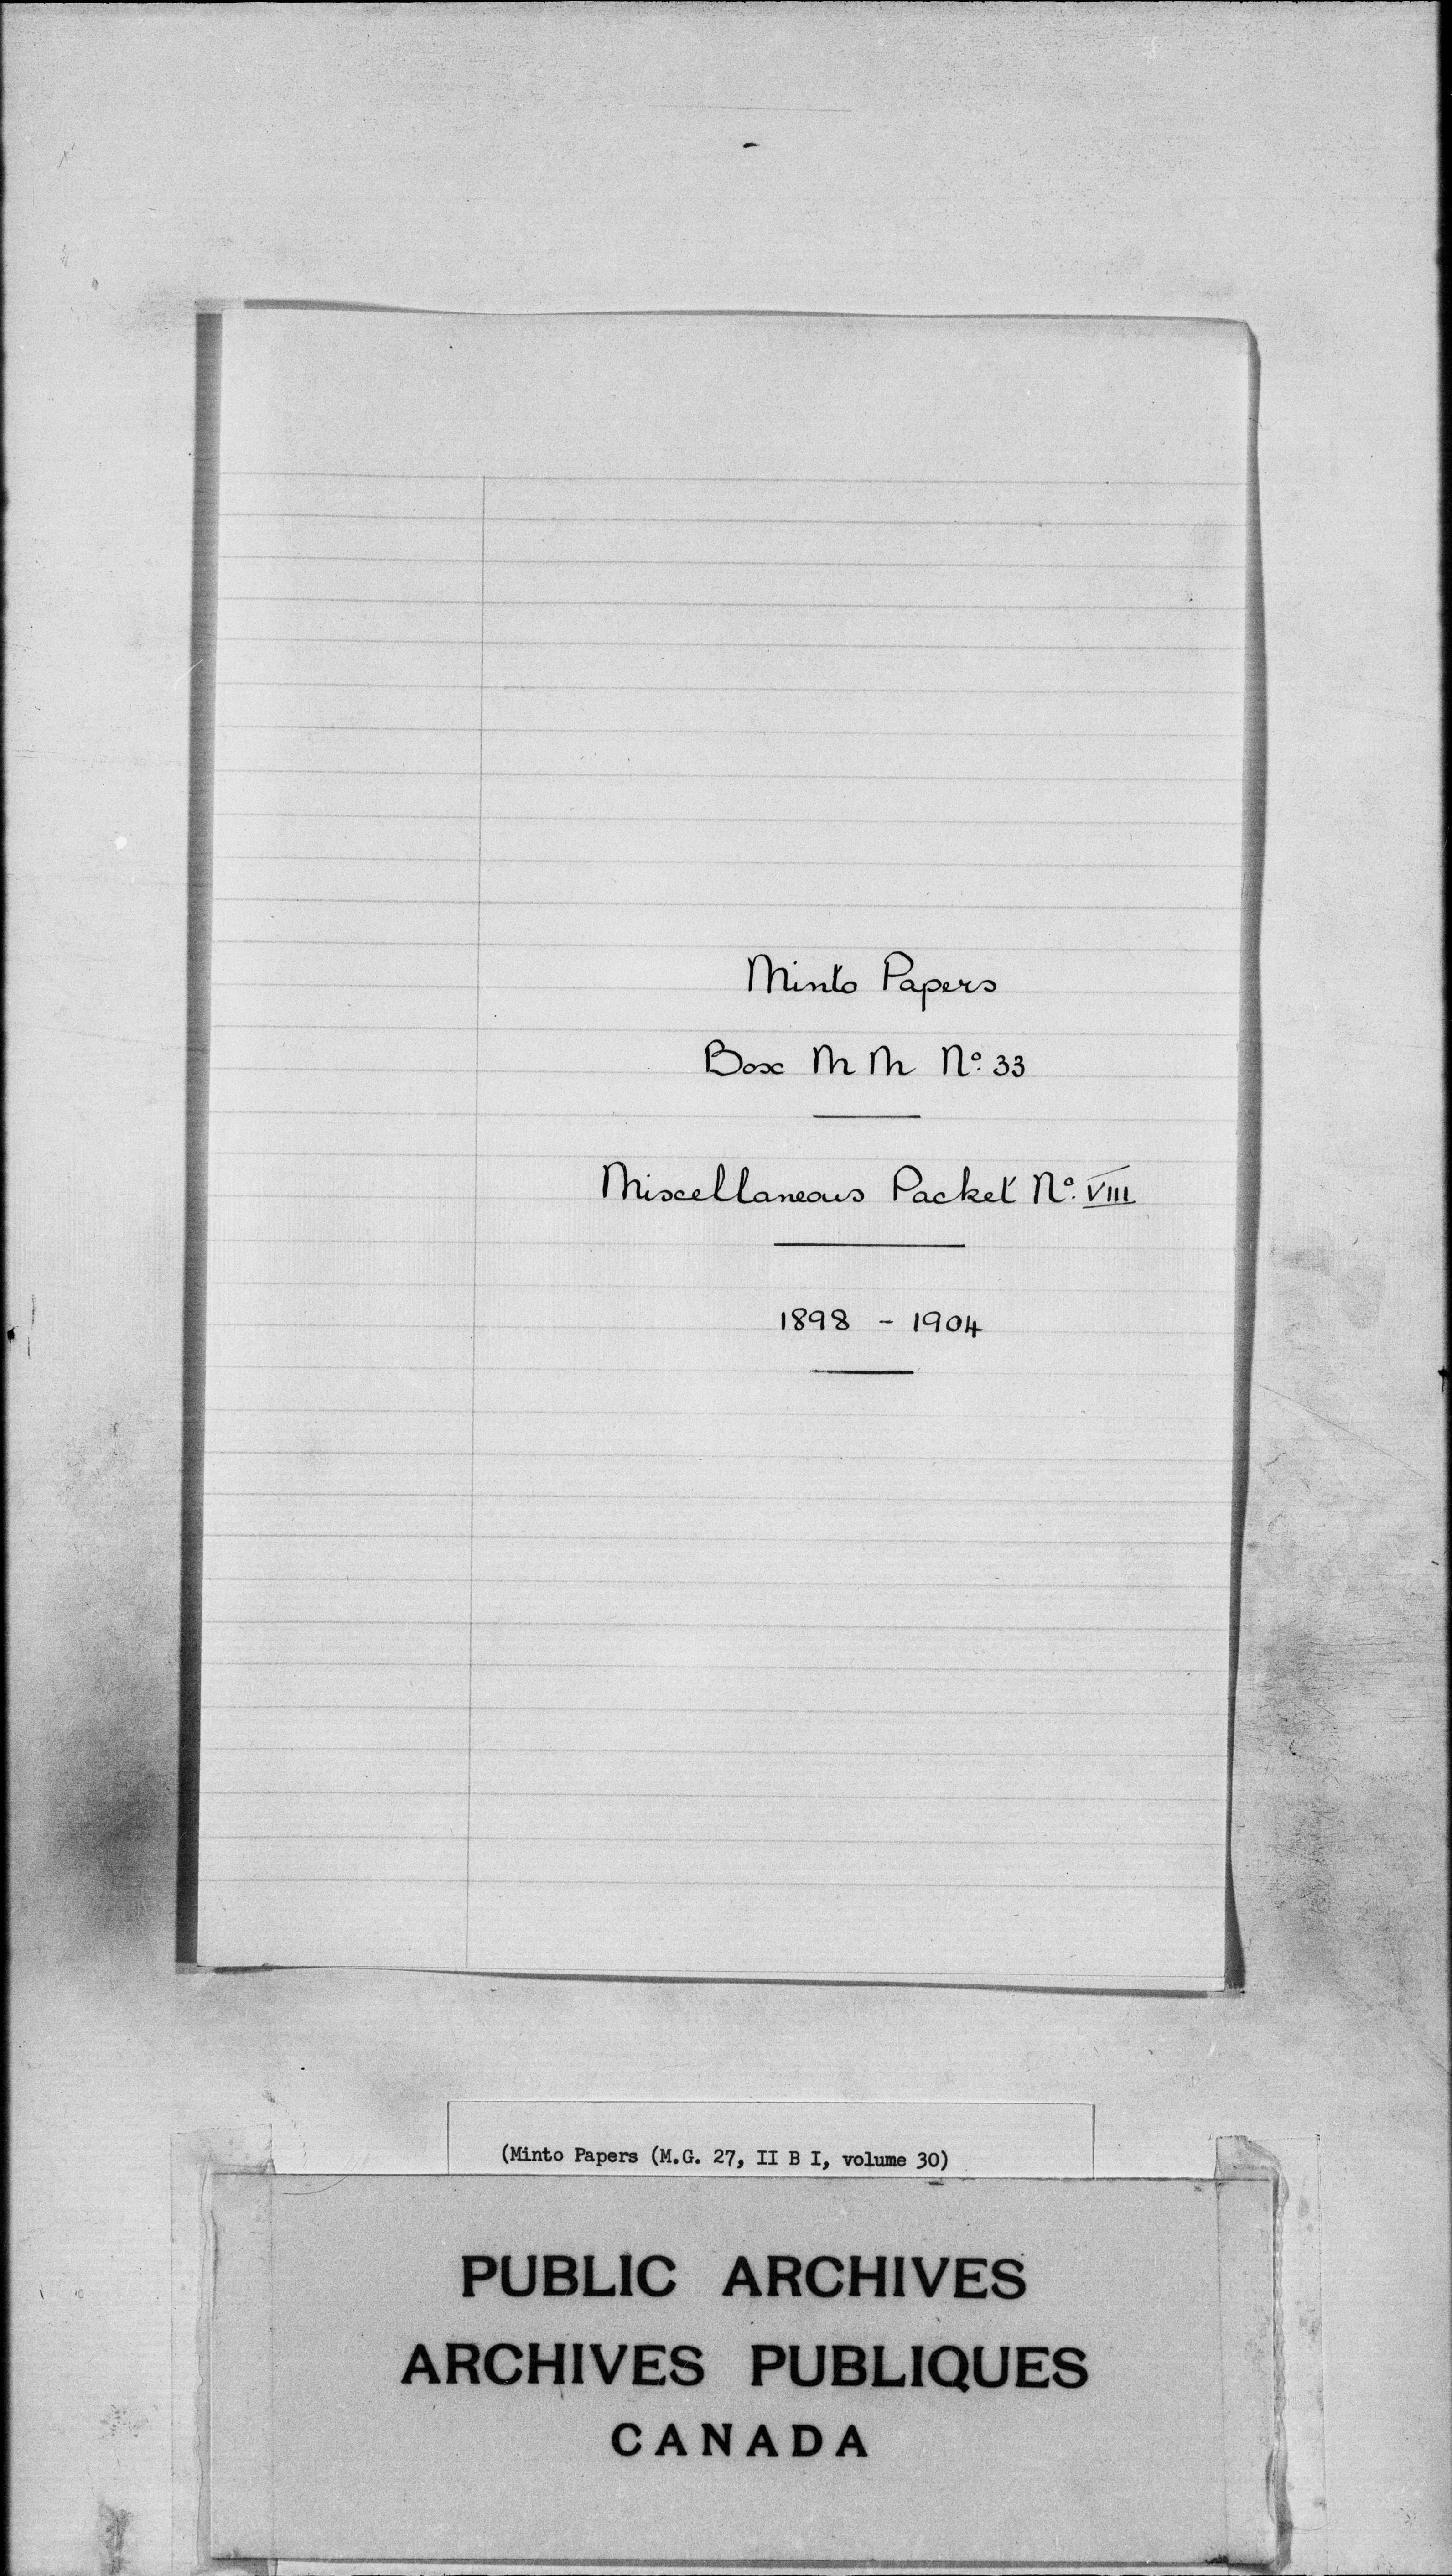 Minto Papers
Box M M Nº. 33
Miscellaneous Packet Nº. VIII
1898 - 1904
(Minto Papers (M.G. 27, II B I, volume 30)
PUBLIC ARCHIVES
ARCHIVES PUBLIQUES
CANADA